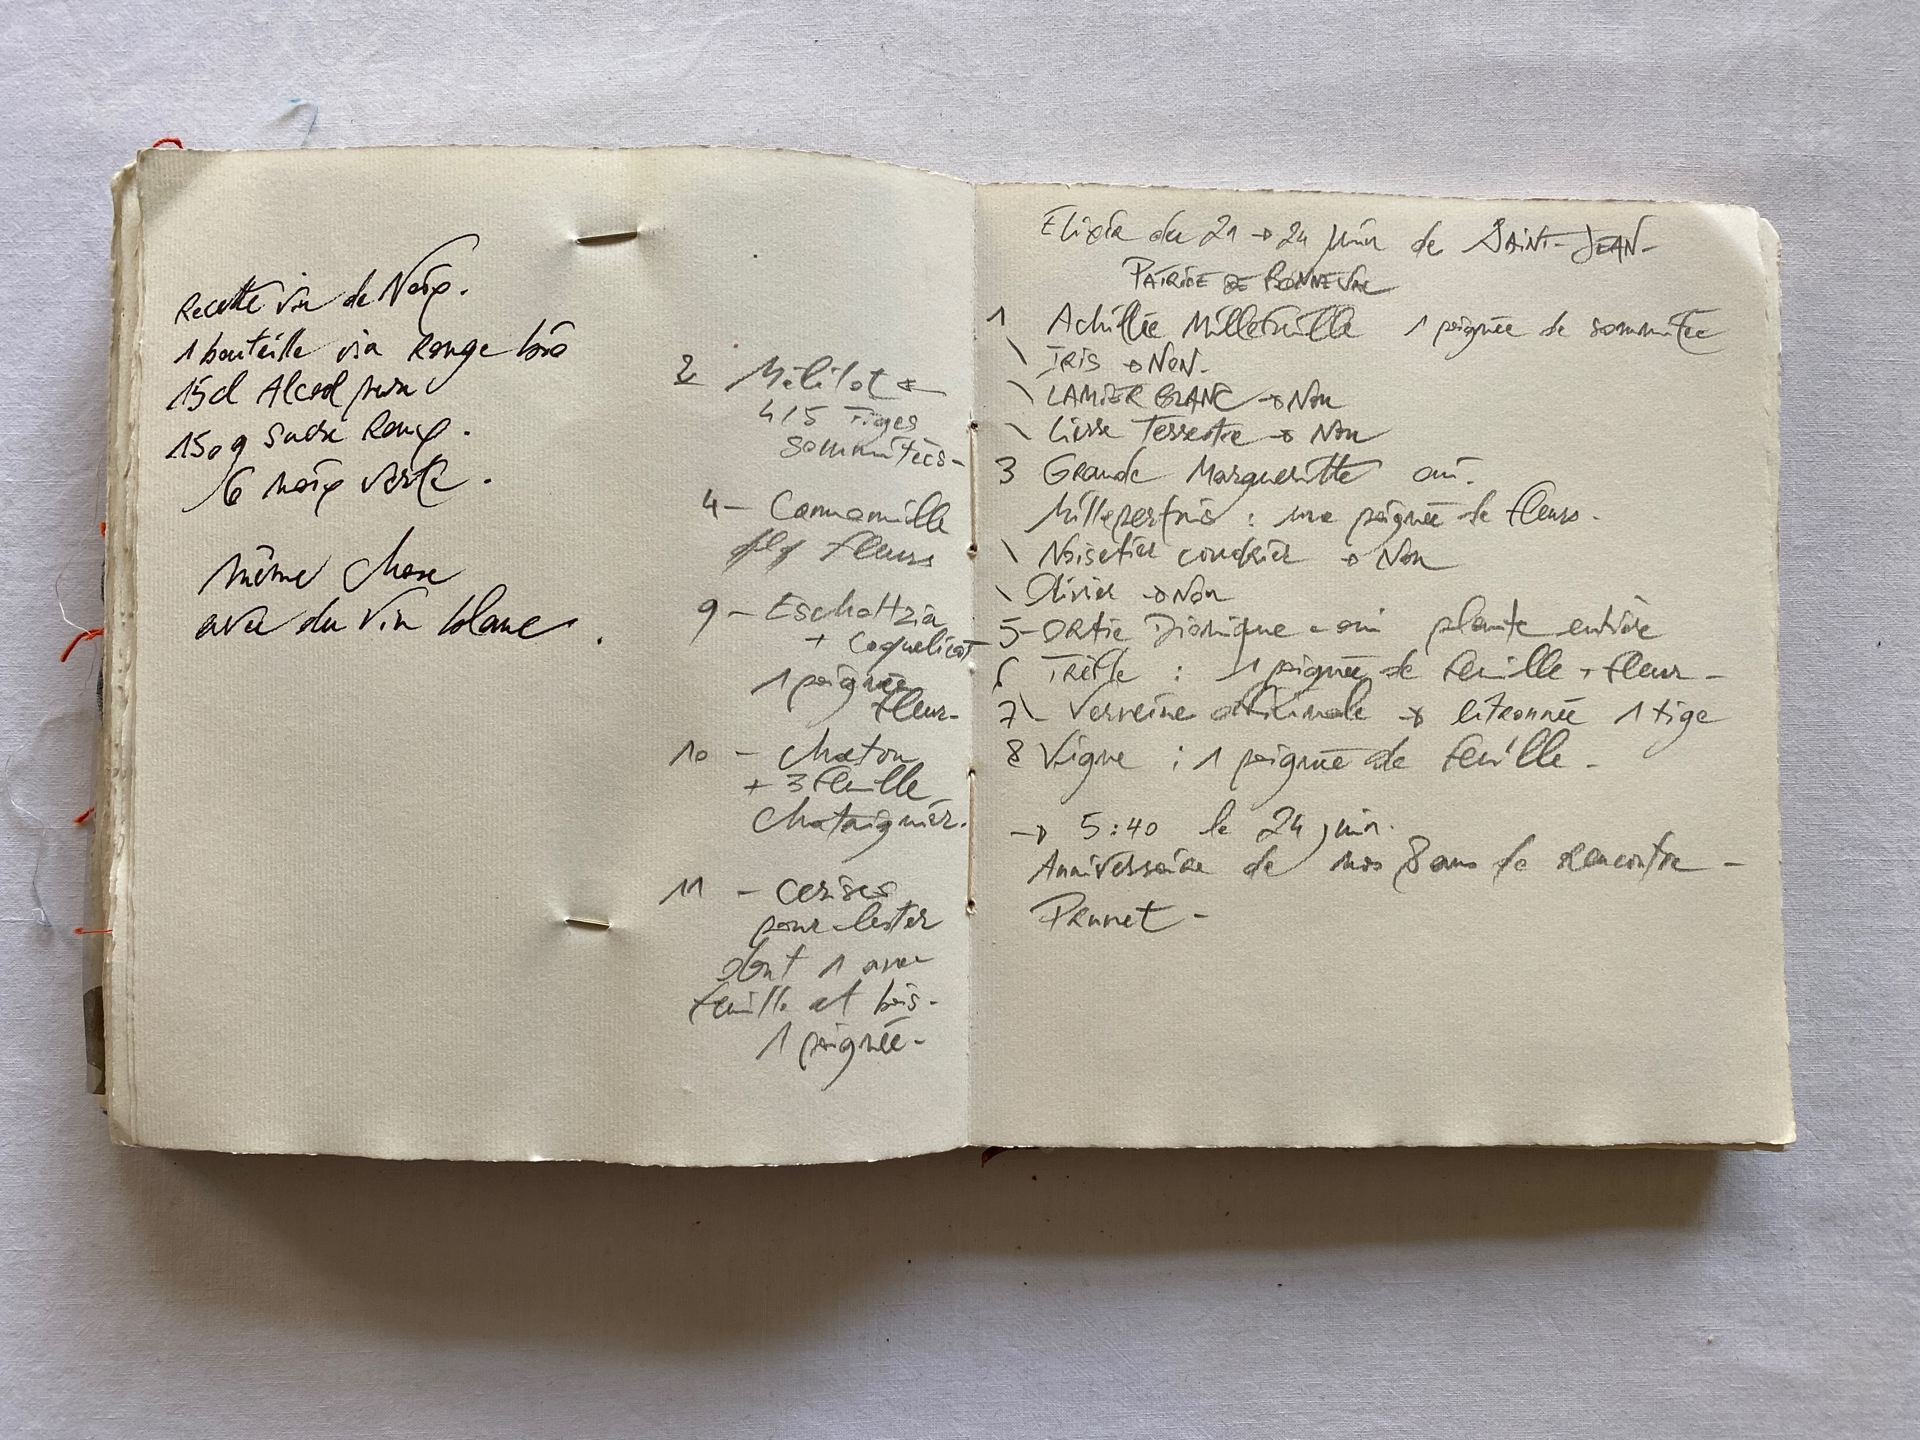 Recette vin de Noix.
1 bouteille vin Rouge bio
15cl Alcool pur
150g Sucre Roux.
6 noix verte.
même chose
avec du Vin blanc.
2 Mélilot
4/5 Tiges
sommités-
4- Cammomille
fleurs
9- Eschottzia
+ Coquelicot
1 poignée
fleur-
10 - chaton
+ 3 feuille
chataignier.
11 - cerises
pour lester
dont 1 avec
feuille et bois-
1 poignée-
Elixir du 21 → 24 juin de SAINT-JEAN-
PATRICE DE BONNEVAL
1 Achillée Millefeuille 1 poignée de sommitée
\ IRIS → NON.
\ LAMIER BLANC → Non
\ Lierre Terrestre → Non
3 Grande Margueritte oui.
Millepertuis : une poignée de fleurs.
\ Noisetier coudrier → Non
\ Olivier → Non
5- ORTie Dioique - oui plante entière
6 Trèfle : 1 poignée de feuille + fleur -
7\- Verveine officinale → citronnée 1 tige
8 Vigne : 1 poignée de feuille -
→ 5:40 le 24 juin.
Anniversaire de nos 8 ans de rencontre -